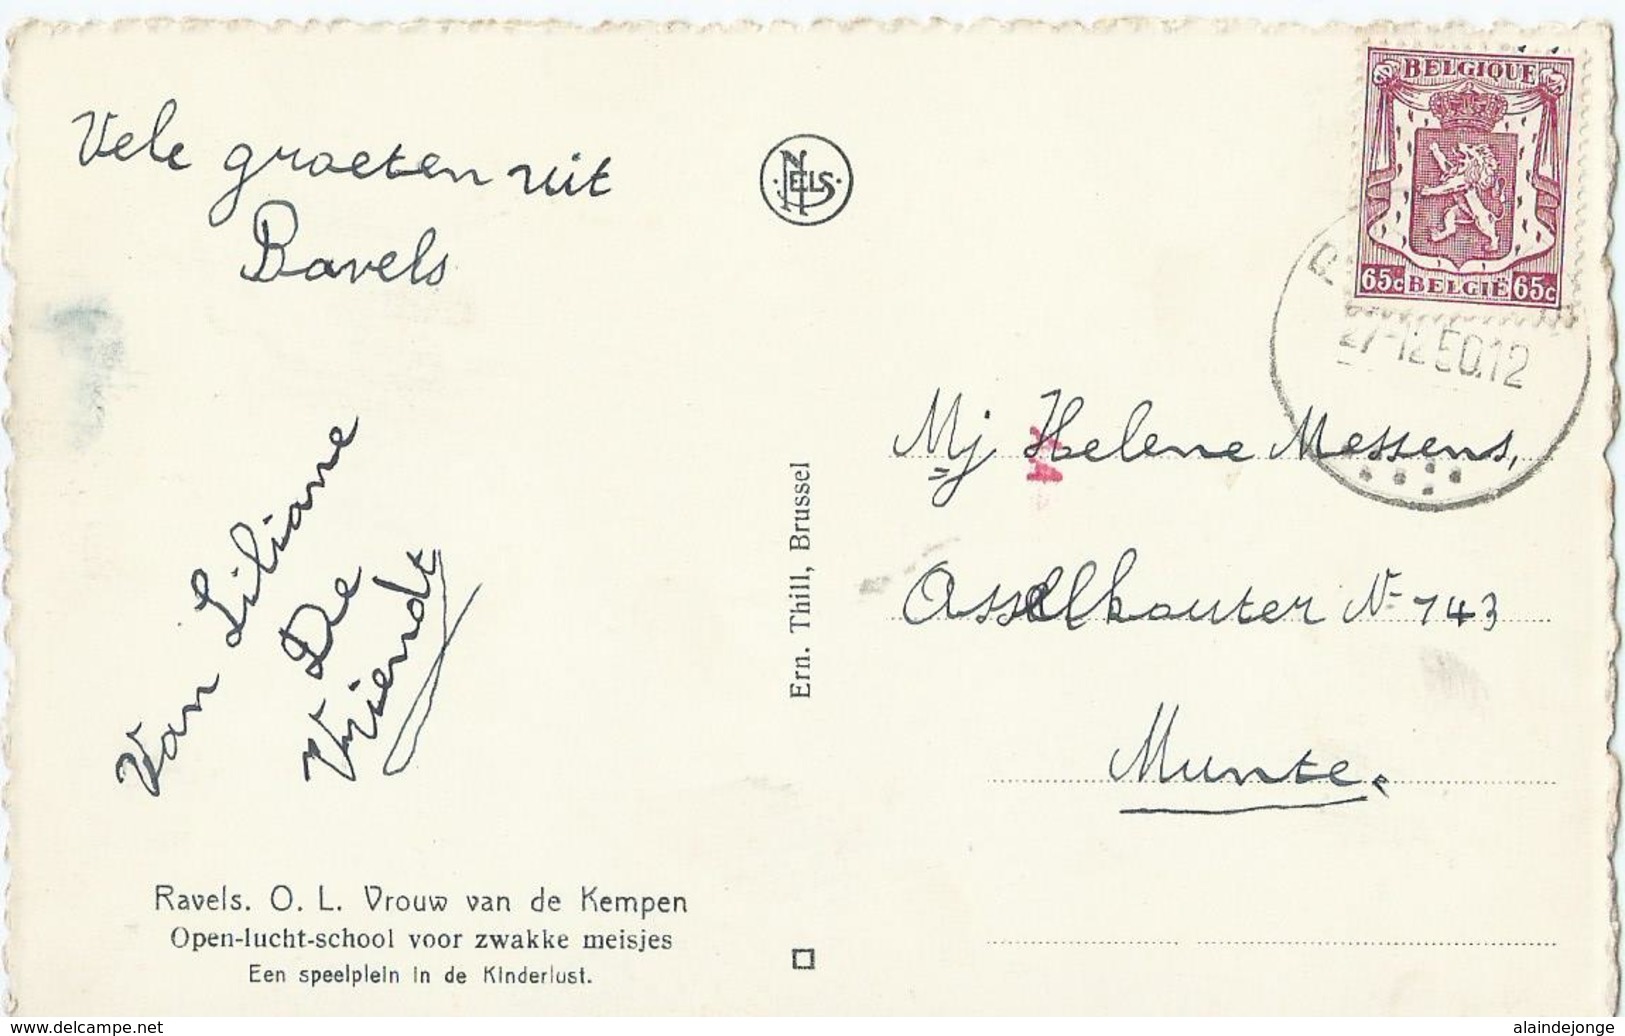 Vele groeten uit
Ravels
Van Liliane
De
Vriendt
Ravels. O. L. Vrouw van de Kempen
Open-lucht-school voor zwakke meisjes
Een speelplein in de Kinderlust.
NELS
Ern. Thill, Brussel
BELGIQUE
65c BELGIË 65c
27-12 50.12
Mj Helene Messens,
Asselkouter N= 143
Munte.
www.delcampe.net
alaindejonge